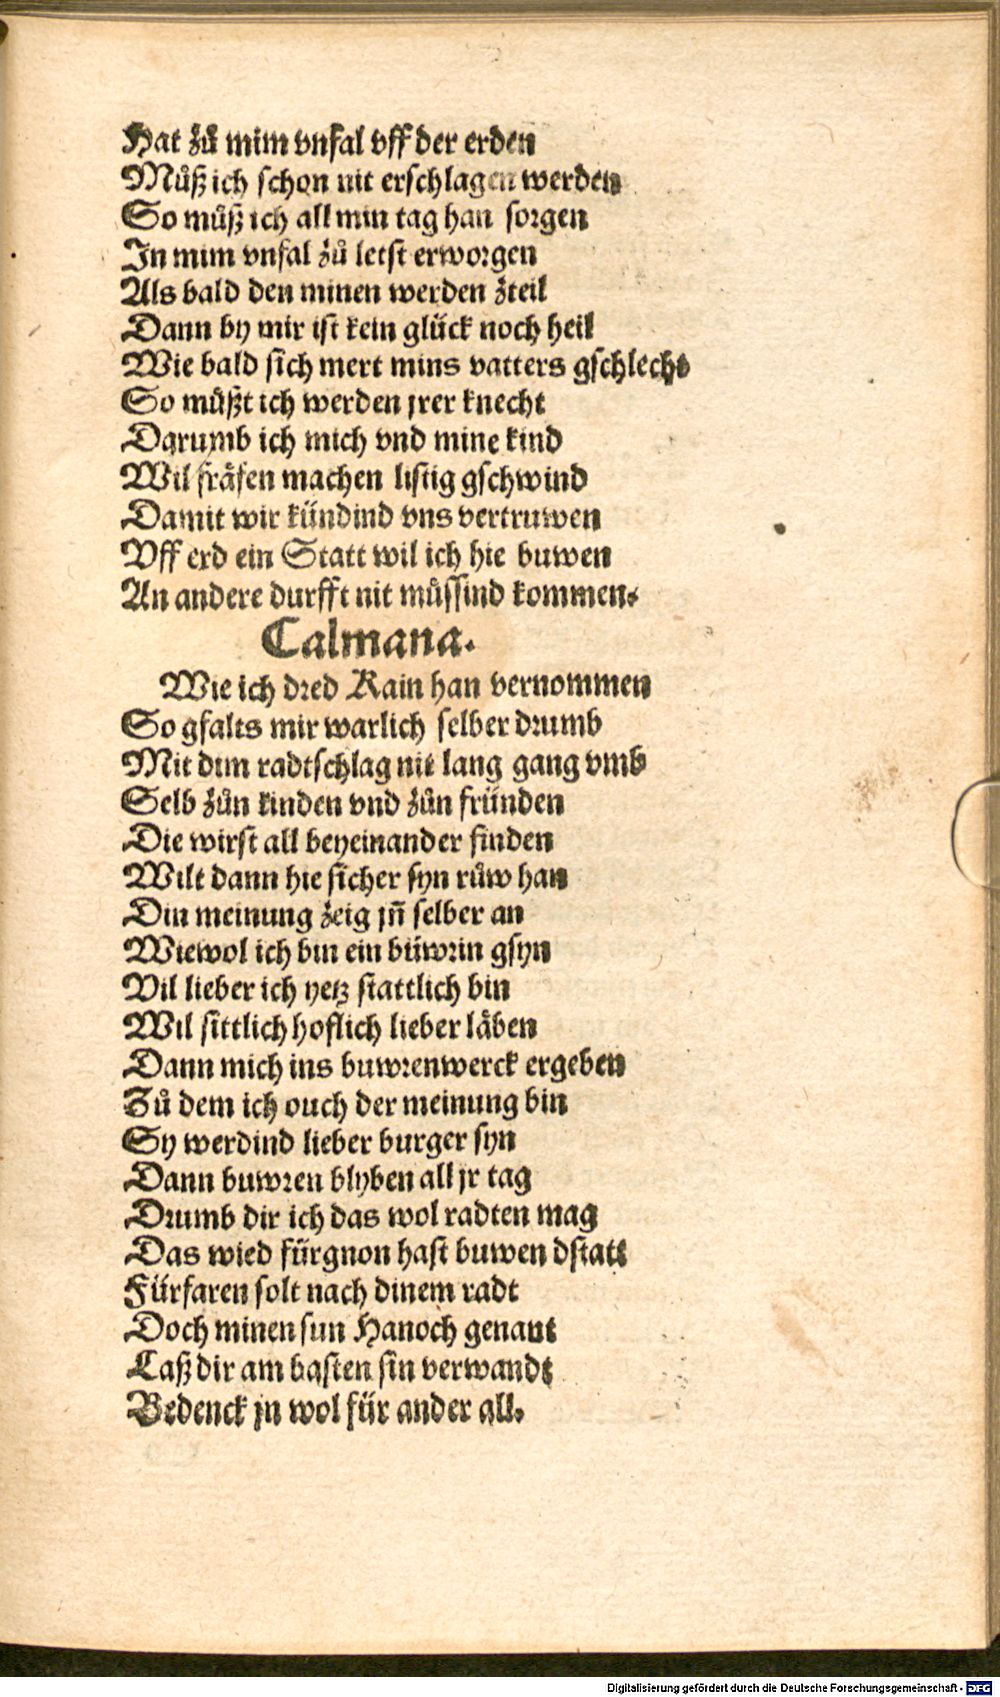 Hat zů mim vnfal vff der erden
Můß ich schon nit erschlagen werden
So můß ich all min tag han sorgen
In mim vnfal zů letst erworgen
Als bald den minen werden zteil
Dann by mir ist kein glück noch heil
Wie bald sich mert mins vatters gschlecht
So můßt ich werden jrer knecht
Darumb ich mich vnd mine kind
Wil fräfen machen listig gschwind
Damit wir kündind vns vertruwen
Vff erd ein Statt wil ich hie buwen
An andere durfft nit müssind kommen.
Calmana.
Wie ich dred Kain han vernommen
So gfalts mir warlich selber drumb
Mit dim radtschlag nit lang gang vmb
Selb zůn kinden vnd zůn fründen
Die wirst all beyeinander finden
Wilt dann hie sicher syn růw han
Din meinung zeig jñ selber an
Wiewol ich bin ein büwrin gsyn
Vil lieber ich yetz stattlich bin
Wil sittlich hoflich lieber läben
Dann mich ins buwrenwerck ergeben
Zů dem ich ouch der meinung bin
Sy werdind lieber burger syn
Dann buwren blyben all jr tag
Drumb dir ich das wol radten mag
Das wied fürgnon hast buwen dstatt
Fürfaren solt nach dinem radt
Doch minen sun Hanoch genant
Laß dir am basten sin verwandt
Bedenck jn wol für ander all.
Digitalisierung gefördert durch die Deutsche Forschungsgemeinschaft - DFG